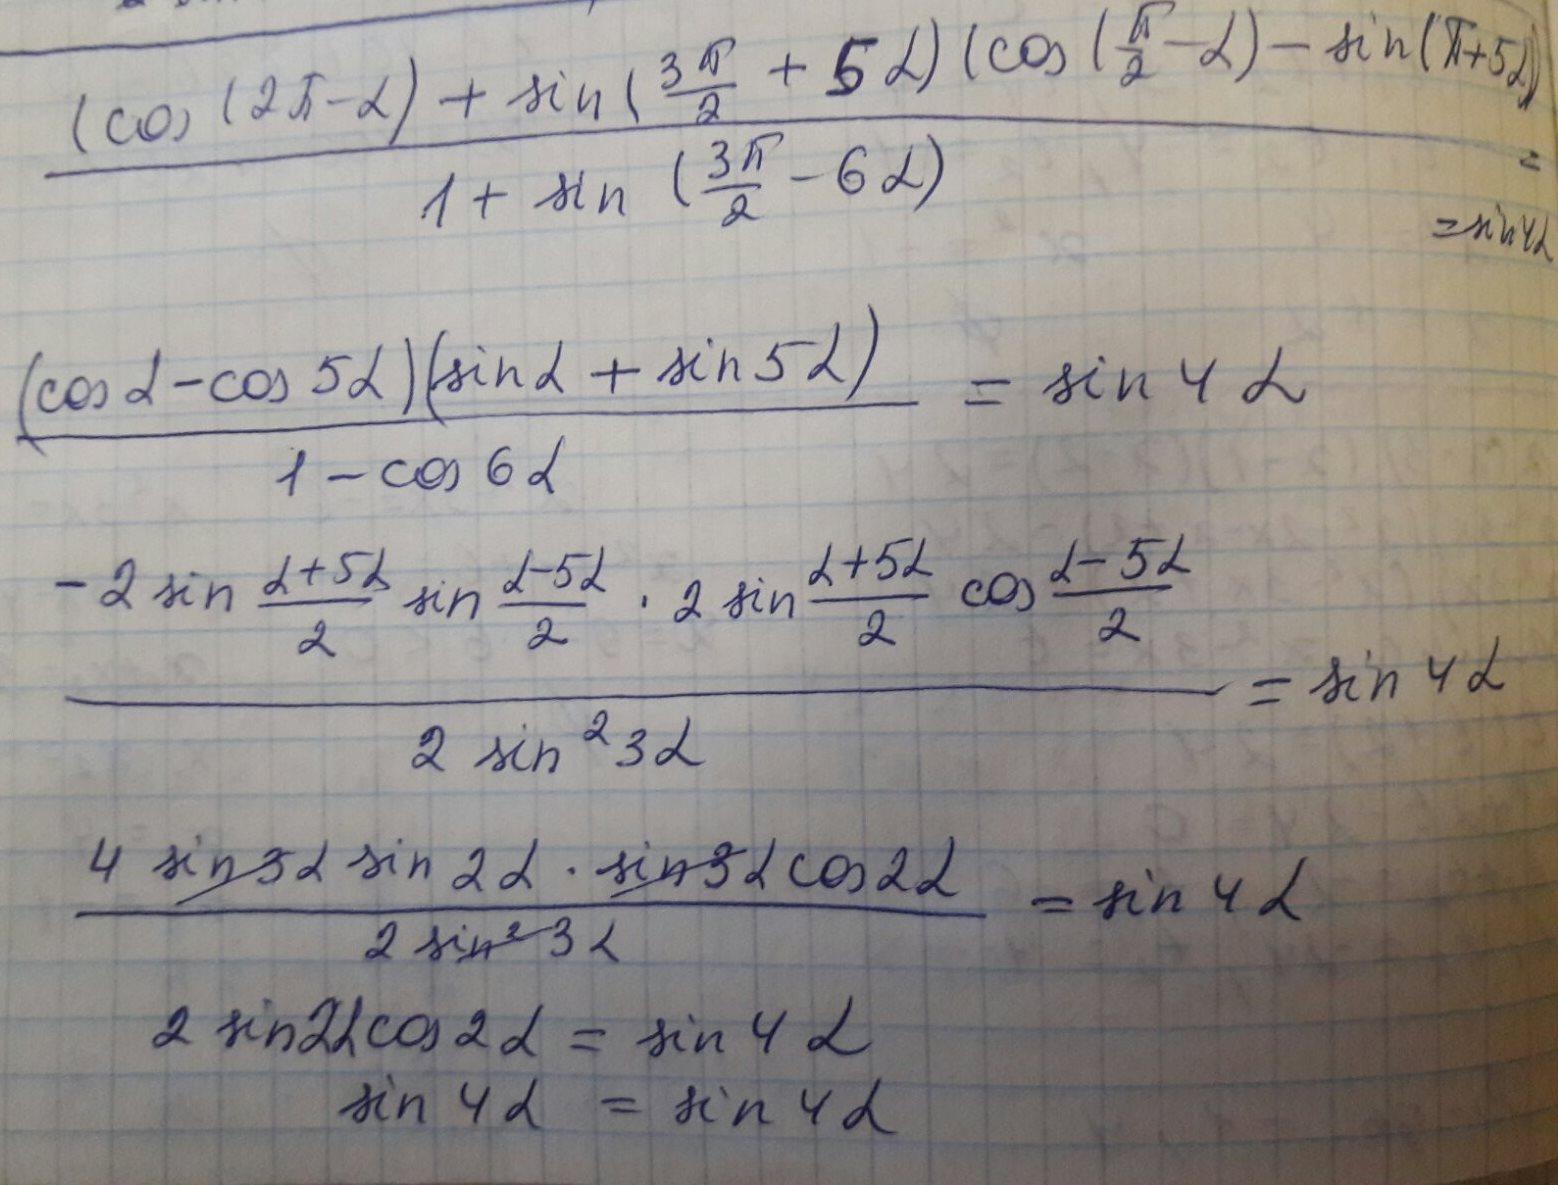 (cos (2π-α) + sin (3π/2 + 5α) (cos (π/2 - α) - sin (π+5α))
1 + sin (3π/2 - 6α)
=
= sin 4α
(cos α - cos 5α)(sin α + sin 5α) = sin 4 α
1 - cos 6α
-2 sin α+5α/2 sin α-5α/2 · 2 sin α+5α/2 cos α-5α/2 = sin 4α
2 sin² 3α
4 sin 3α sin 2α · sin 3α cos 2α = sin 4 α
2 sin² 3α
2 sin 2α cos 2α = sin 4 α
sin 4α = sin 4α